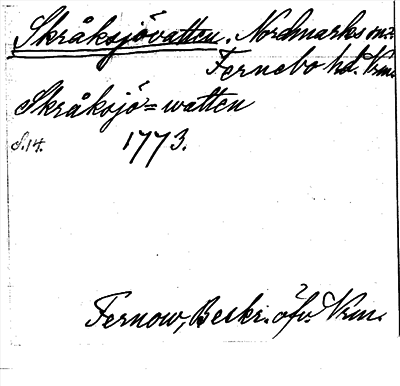 Skråksjövatten. Nordmarks sn.
Fernebo hd. Vrm.
Skråksjö=watten
S.14. 1773.
Fernow, Beskr. öfv. Vrm.